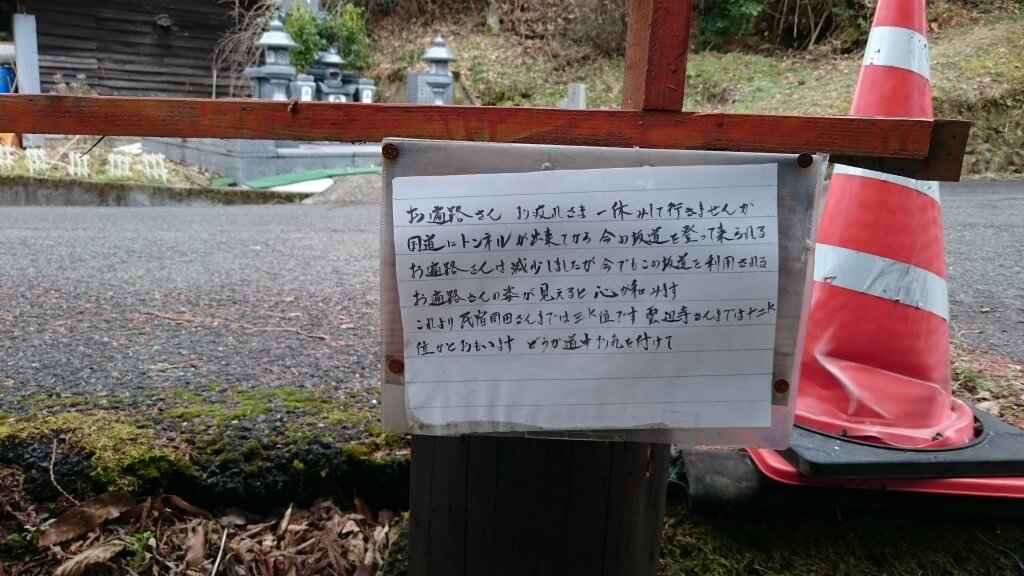 お遍路さん お疲れさま 一休みして行きませんか
国道にトンネルが出来てから 今の坂道を登って来られる
お遍路さんは減少しましたが 今でもこの坂道を利用される
お遍路さんの姿が見えると 心が和みます
これより民宿岡田さんまでは三K位です 雲辺寺さんまでは十二K
位かとおもいます どうか道中お気を付けて